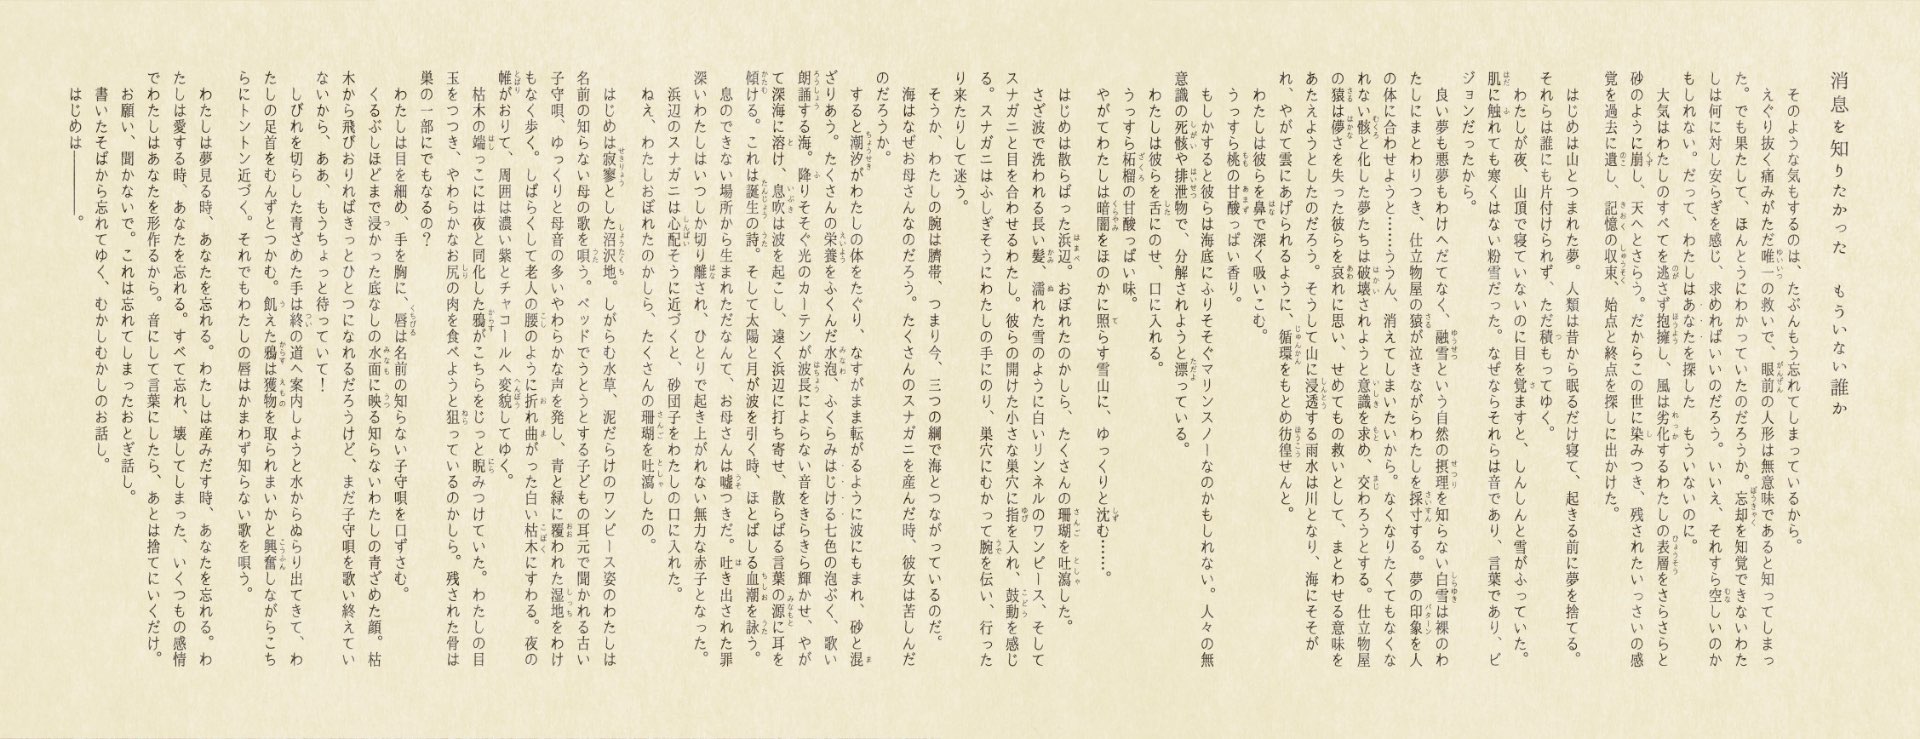 消息を知りたかった　もういない誰か
そのような気もするのは、たぶんもう忘れてしまっているから。
えぐり抜く痛みがただ唯一の救いで、眼前の人形は無意味であると知ってしまっ
た。でも果たして、ほんとうにわかっていたのだろうか。忘却を知覚できないわた
しは何に対し安らぎを感じ、求めればいいのだろう。いいえ、それすら空しいのか
もしれない。だって、わたしはあなたを探した　もういないのに。
大気はわたしのすべてを逃さず抱擁し、風は劣化するわたしの表層をさらさらと
砂のように崩し、天へとさらう。だからこの世に染みつき、残されたいっさいの感
覚を過去に遺し、記憶の収束、始点と終点を探しに出かけた。
はじめは山とつまれた夢。人類は昔から眠るだけ寝て、起きる前に夢を捨てる。
それらは誰にも片付けられず、ただ積もってゆく。
わたしが夜、山頂で寝ていないのに目を覚ますと、しんしんと雪がふっていた。
肌に触れても寒くはない粉雪だった。なぜならそれらは音であり、言葉であり、ビ
ジョンだったから。
良い夢も悪夢もわけへだてなく、融雪という自然の摂理を知らない白雪は裸のわ
たしにまとわりつき、仕立物屋の猿が泣きながらわたしを採寸する。夢の印象を人
の体に合わせようと……ううん、消えてしまいたいから。なくなりたくてもなくな
れない骸と化した夢たちは破壊されようと意識を求め、交わろうとする。仕立物屋
の猿は儚さを失った彼らを哀れに思い、せめてもの救いとして、まとわせる意味を
あたえようとしたのだろう。そうして山に浸透する雨水は川となり、海にそそが
れ、やがて雲にあげられるように、循環をもとめ彷徨せんと。
わたしは彼らを鼻で深く吸いこむ。
うっすら桃の甘酸っぱい香り。
もしかすると彼らは海底にふりそそぐマリンスノーなのかもしれない。人々の無
意識の死骸や排泄物で、分解されようと漂っている。
わたしは彼らを舌にのせ、口に入れる。
うっすら柘榴の甘酸っぱい味。
やがてわたしは暗闇をほのかに照らす雪山に、ゆっくりと沈む……。
はじめは散らばった浜辺。おぼれたのかしら、たくさんの珊瑚を吐瀉した。
さざ波で洗われる長い髪、濡れた雪のように白いリンネルのワンピース、そして
スナガニと目を合わせるわたし。彼らの開けた小さな巣穴に指を入れ、鼓動を感じ
る。スナガニはふしぎそうにわたしの手にのり、巣穴にむかって腕を伝い、行った
り来たりして迷う。
そうか、わたしの腕は臍帯、つまり今、三つの綱で海とつながっているのだ。
海はなぜお母さんなのだろう。たくさんのスナガニを産んだ時、彼女は苦しんだ
のだろうか。
すると潮汐がわたしの体をたぐり、なすがまま転がるように波にもまれ、砂と混
ざりあう。たくさんの栄養をふくんだ水泡、ふくらみはじける七色の泡ぶく、歌い
朗誦する海。降りそそぐ光のカーテンが波長によらない音をきらきら輝かせ、やが
て深海に溶け、息吹は波を起こし、遠く浜辺に打ち寄せ、散らばる言葉の源に耳を
傾ける。これは誕生の詩。そして太陽と月が波を引く時、ほとばしる血潮を詠う。
息のできない場所から生まれただなんて、お母さんは嘘つきだ。吐き出された罪
深いわたしはいつしか切り離され、ひとりで起き上がれない無力な赤子となった。
浜辺のスナガニは心配そうに近づくと、砂団子をわたしの口に入れた。
ねえ、わたしおぼれたのかしら、たくさんの珊瑚を吐瀉したの。
はじめは寂寥とした沼沢地。しがらむ水草、泥だらけのワンピース姿のわたしは
名前の知らない母の歌を唄う。ベッドでうとうとする子どもの耳元で聞かれる古い
子守唄、ゆっくりと母音の多いやわらかな声を発し、青と緑に覆われた湿地をわけ
もなく歩く。しばらくして老人の腰のように折れ曲がった白い枯木にすわる。夜の
帷がおりて、周囲は濃い紫とチャコールへ変貌してゆく。
枯木の端っこには夜と同化した鴉がこちらをじっと睨みつけていた。わたしの目
玉をつつき、やわらかなお尻の肉を食べようと狙っているのかしら。残された骨は
巣の一部にでもなるの？
わたしは目を細め、手を胸に、唇は名前の知らない子守唄を口ずさむ。
くるぶしほどまで浸かった底なしの水面に映る知らないわたしの青ざめた顔。枯
木から飛びおりればきっとひとつになれるだろうけど、まだ子守唄を歌い終えてい
ないから、ああ、もうちょっと待っていて！
しびれを切らした青ざめた手は終の道へ案内しようと水からぬらり出てきて、わ
たしの足首をむんずとつかむ。飢えた鴉は獲物を取られまいかと興奮しながらこち
らにトントン近づく。それでもわたしの唇はかまわず知らない歌を唄う。
わたしは夢見る時、あなたを忘れる。わたしは産みだす時、あなたを忘れる。わ
たしは愛する時、あなたを忘れる。すべて忘れ、壊してしまった、いくつもの感情
でわたしはあなたを形作るから。音にして言葉にしたら、あとは捨てにいくだけ。
お願い、聞かないで。これは忘れてしまったおとぎ話し。
書いたそばから忘れてゆく、むかしむかしのお話し。
はじめは――――。